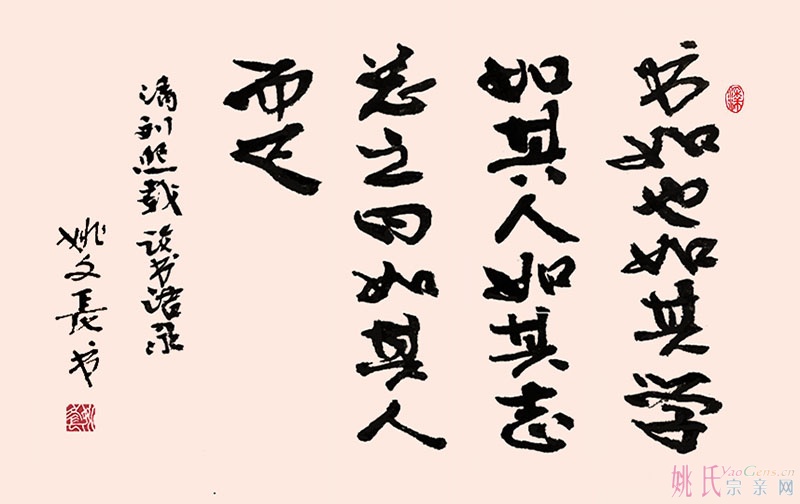 书如也如其学
如其人如其志
总之曰如其人
而已
清刘熙载论书语录
姚文長书
姚氏宗亲网
YaoGens.cn